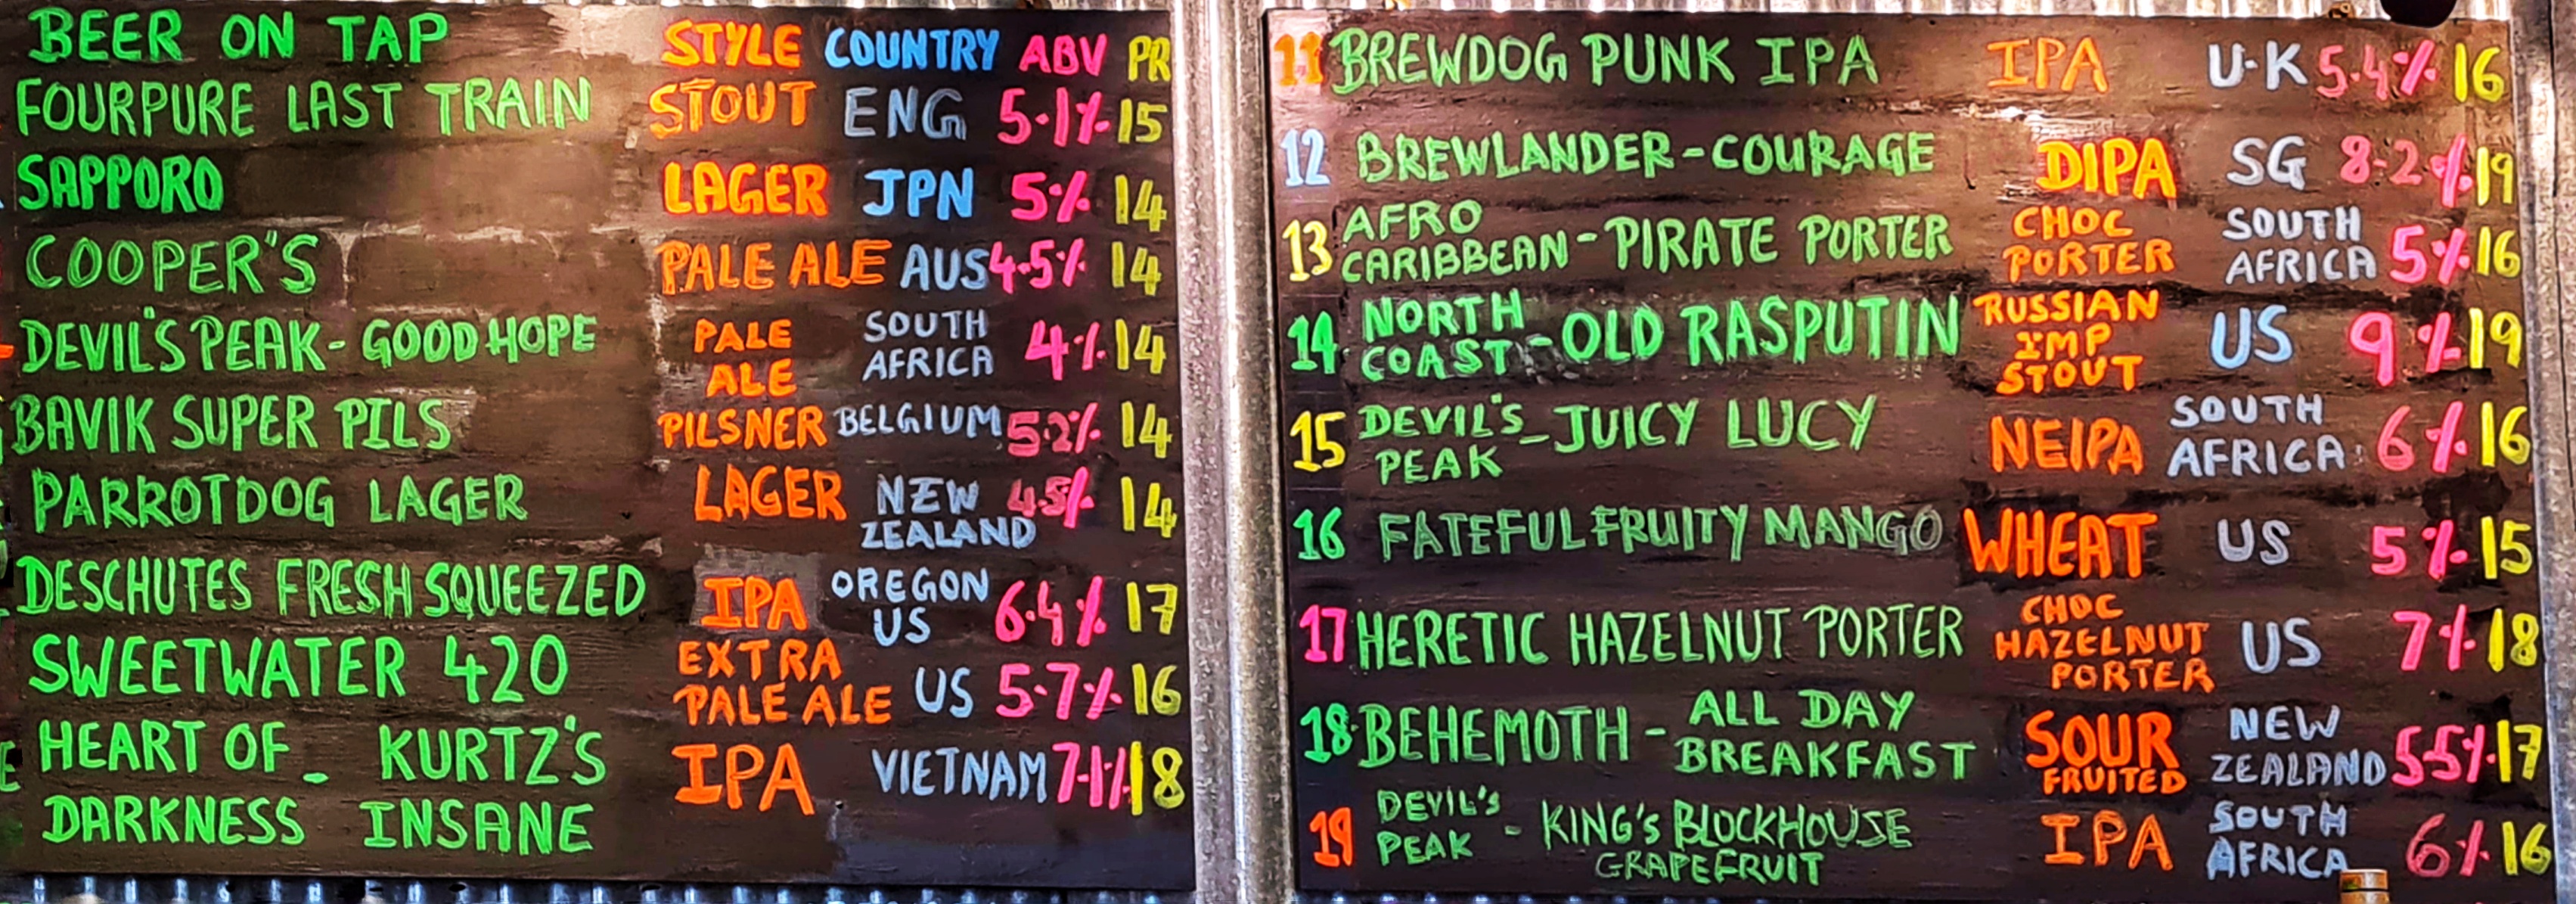 BEER ON TAP STYLE COUNTRY ABV PR
FOURPURE LAST TRAIN STOUT ENG 5.1% 15
SAPPORO LAGER JPN 5% 14
COOPER'S PALE ALE AUS 4.5% 14
DEVIL'S PEAK - GOOD HOPE PALE ALE SOUTH AFRICA 4% 14
BAVIK SUPER PILS PILSNER BELGIUM 5.2% 14
PARROTDOG LAGER LAGER NEW ZEALAND 4.5% 14
DESCHUTES FRESH SQUEEZED IPA OREGON US 6.4% 17
SWEETWATER 420 EXTRA PALE ALE US 5.7% 16
HEART OF - KURTZ'S IPA VIETNAM 7.1% 18
DARKNESS INSANE
11 BREWDOG PUNK IPA IPA U.K 5.4% 16
12 BREWLANDER - COURAGE DIPA SG 8.2% 19
13 AFRO CARIBBEAN - PIRATE PORTER CHOC PORTER SOUTH AFRICA 5% 16
14 NORTH COAST - OLD RASPUTIN RUSSIAN IMP STOUT US 9% 19
15 DEVIL'S PEAK - JUICY LUCY NEIPA SOUTH AFRICA 6% 16
16 FATEFUL FRUITY MANGO WHEAT US 5% 15
17 HERETIC HAZELNUT PORTER CHOC HAZELNUT PORTER US 7% 18
18 BEHEMOTH - ALL DAY BREAKFAST SOUR FRUITED NEW ZEALAND 5.5% 17
19 DEVIL'S PEAK - KING'S BLOCKHOUSE GRAPEFRUIT IPA SOUTH AFRICA 6% 16